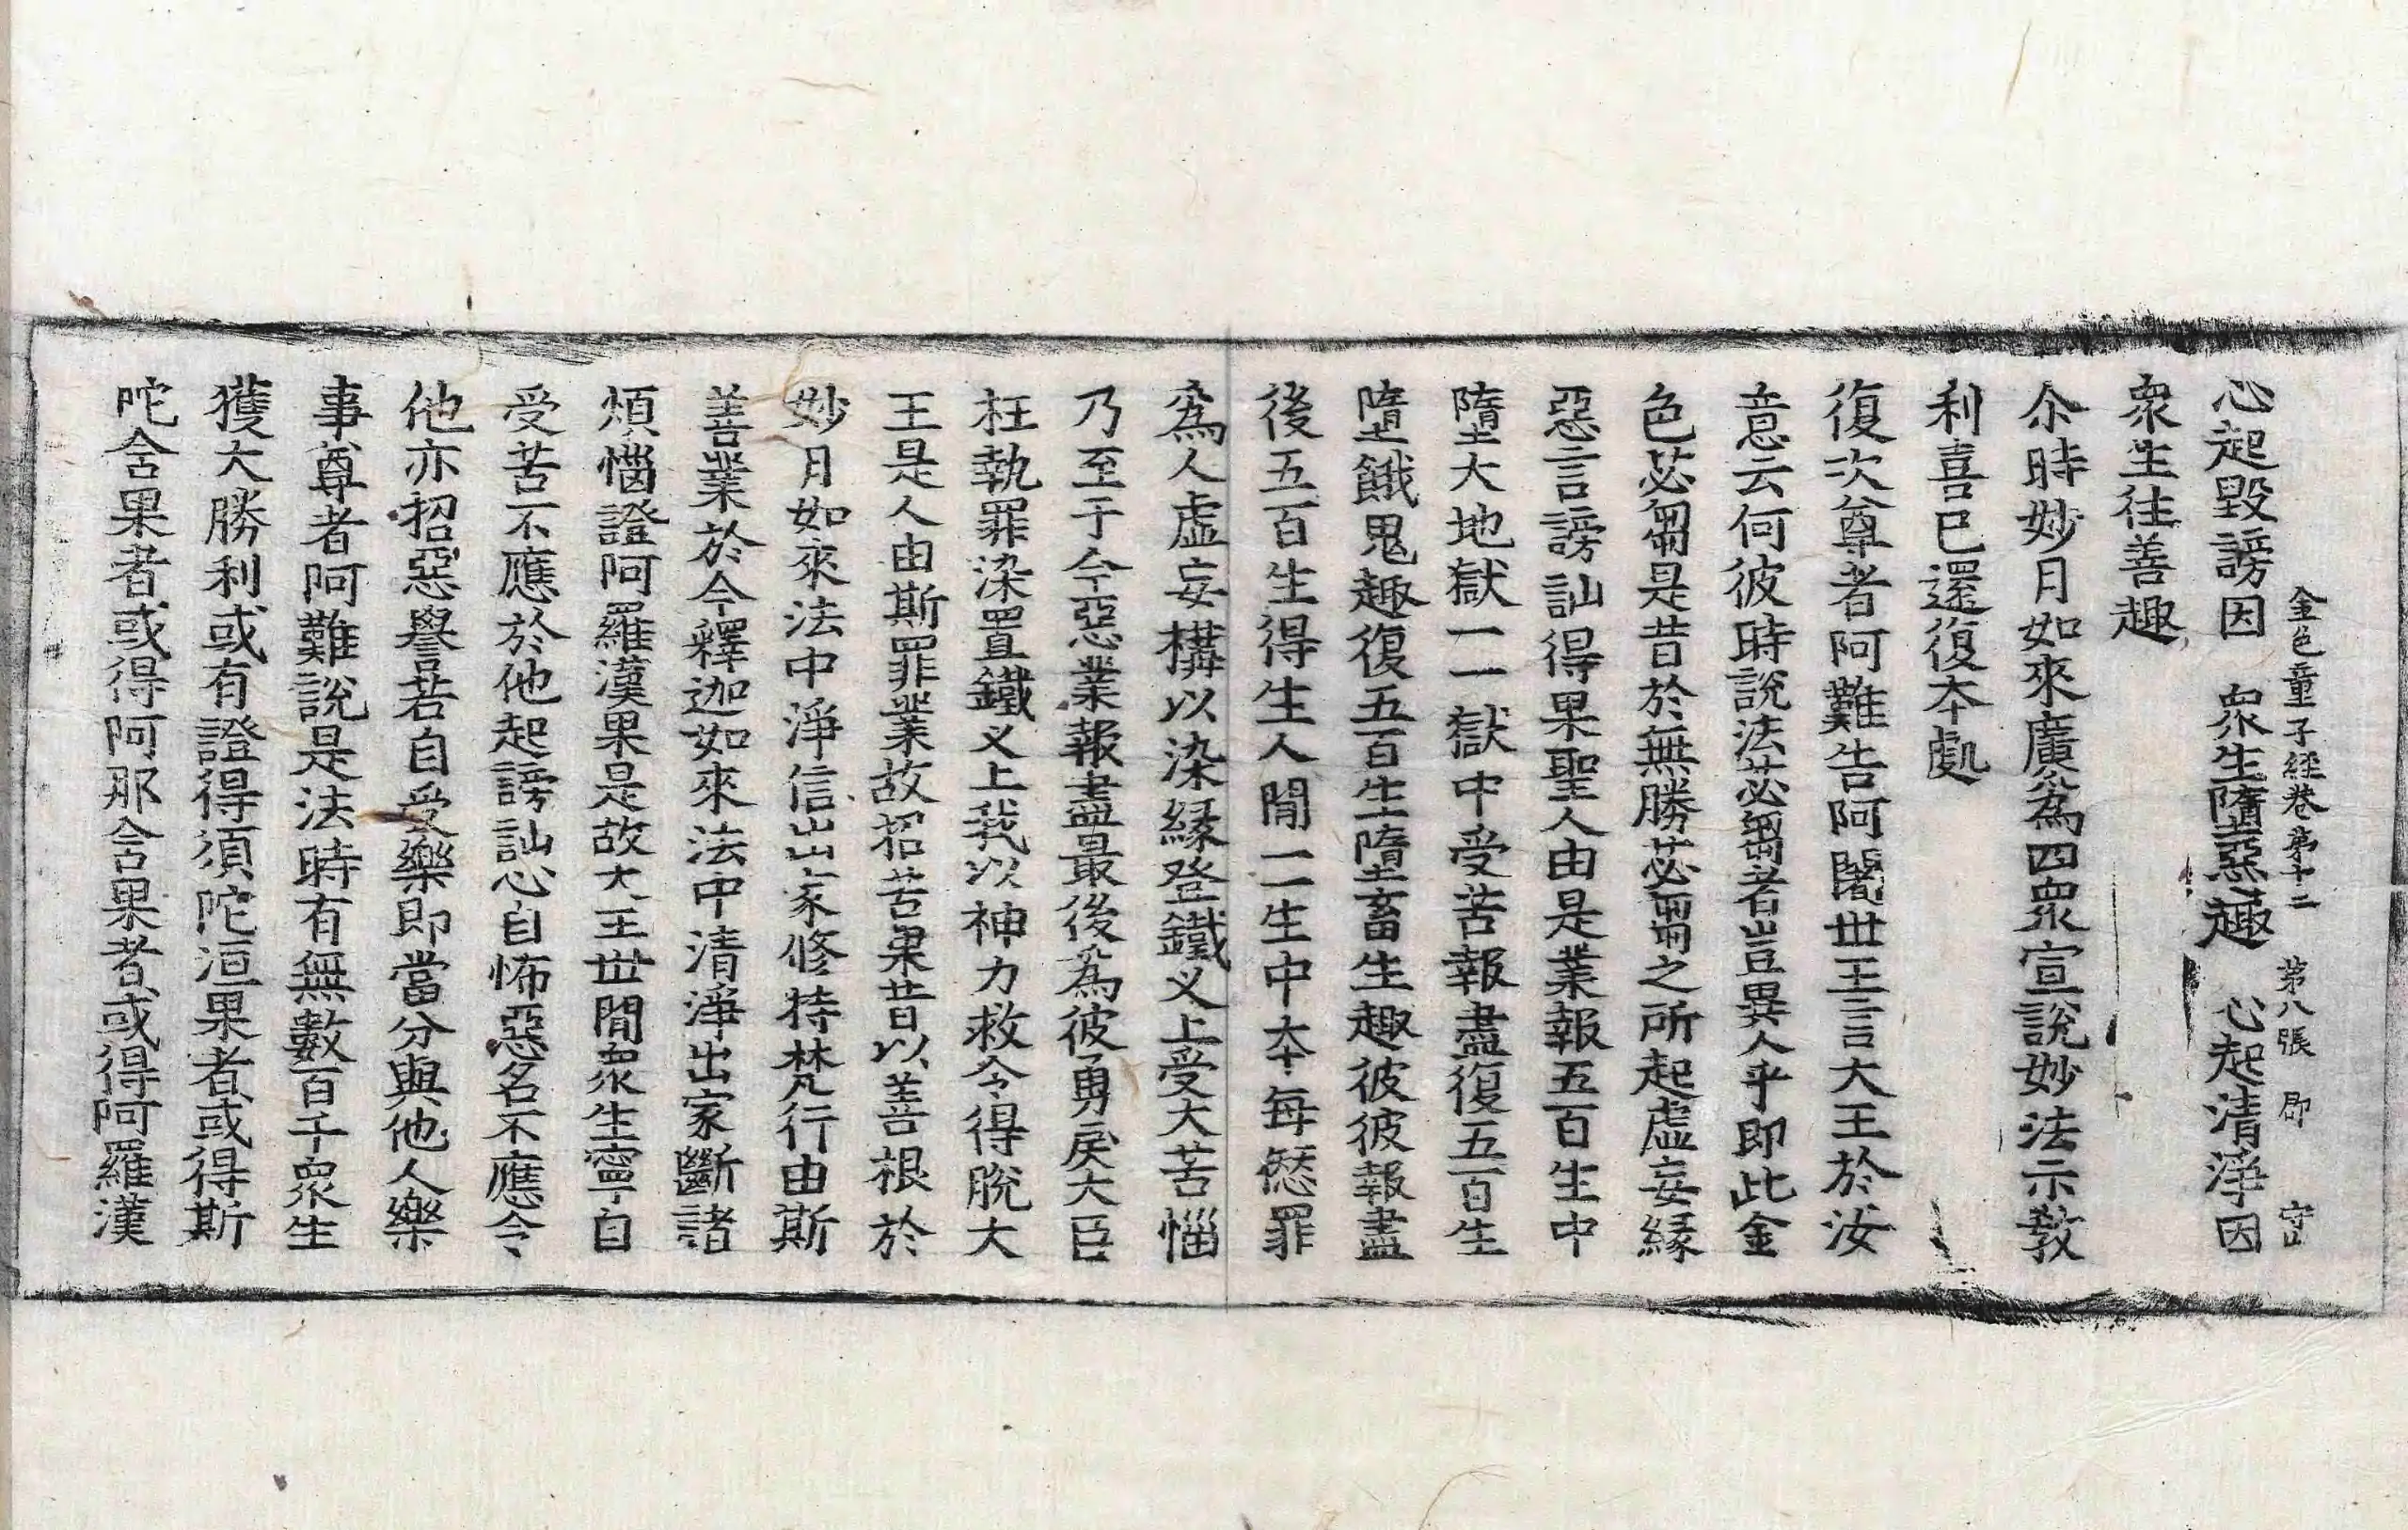 金色童子經卷第十二 第八張 郡 守口
心起毀謗因 衆生墮惡趣 心起清淨因
衆生往善趣
尒時妙月如來廣爲四衆宣說妙法示教
利喜已還復本處
復次尊者阿難告阿闍世王言大王於汝
意云何彼時說法苾芻者豈異人乎即此金
色苾芻是昔於無勝苾芻之所起虛妄緣
惡言謗訕得果聖人由是業報五百生中
墮大地獄一一獄中受苦報盡復五百生
墮餓鬼趣復五百生墮畜生趣彼彼報盡
後五百生得生人閒一一生中本每愆罪
爲人虛妄構以染緣登鐵叉上受大苦惱
乃至于今惡業報盡最後爲彼勇戾大臣
枉執罪染置鐵叉上我以神力救令得脫大
王是人由斯罪業故招苦果昔以善根於
妙月如來法中淨信出家修持梵行由斯
善業於今釋迦如來法中清淨出家斷諸
煩惱證阿羅漢果是故大王世閒衆生寧自
受苦不應於他起謗訕心自怖惡名不應令
他亦招惡譽若自受樂即當分與他人樂
事尊者阿難說是法時有無數百千衆生
獲大勝利或有證得須陀洹果者或得斯
陀含果者或得阿那含果者或得阿羅漢